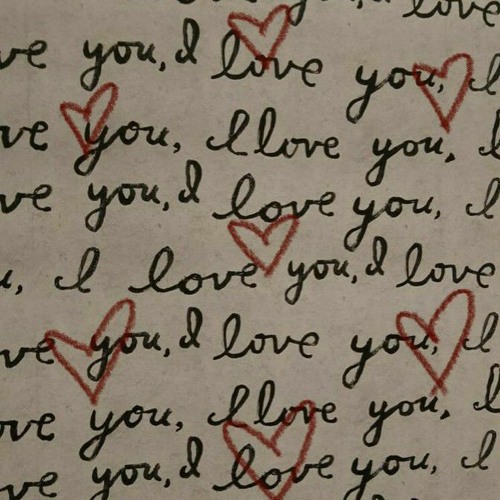 you, I love
ve you, I love you, I
ve you, I love you, I
ve you, I love you, I
u, I love you, I love
ve you, I love you, I
ove you, I love you, I
ve you, I love you, I